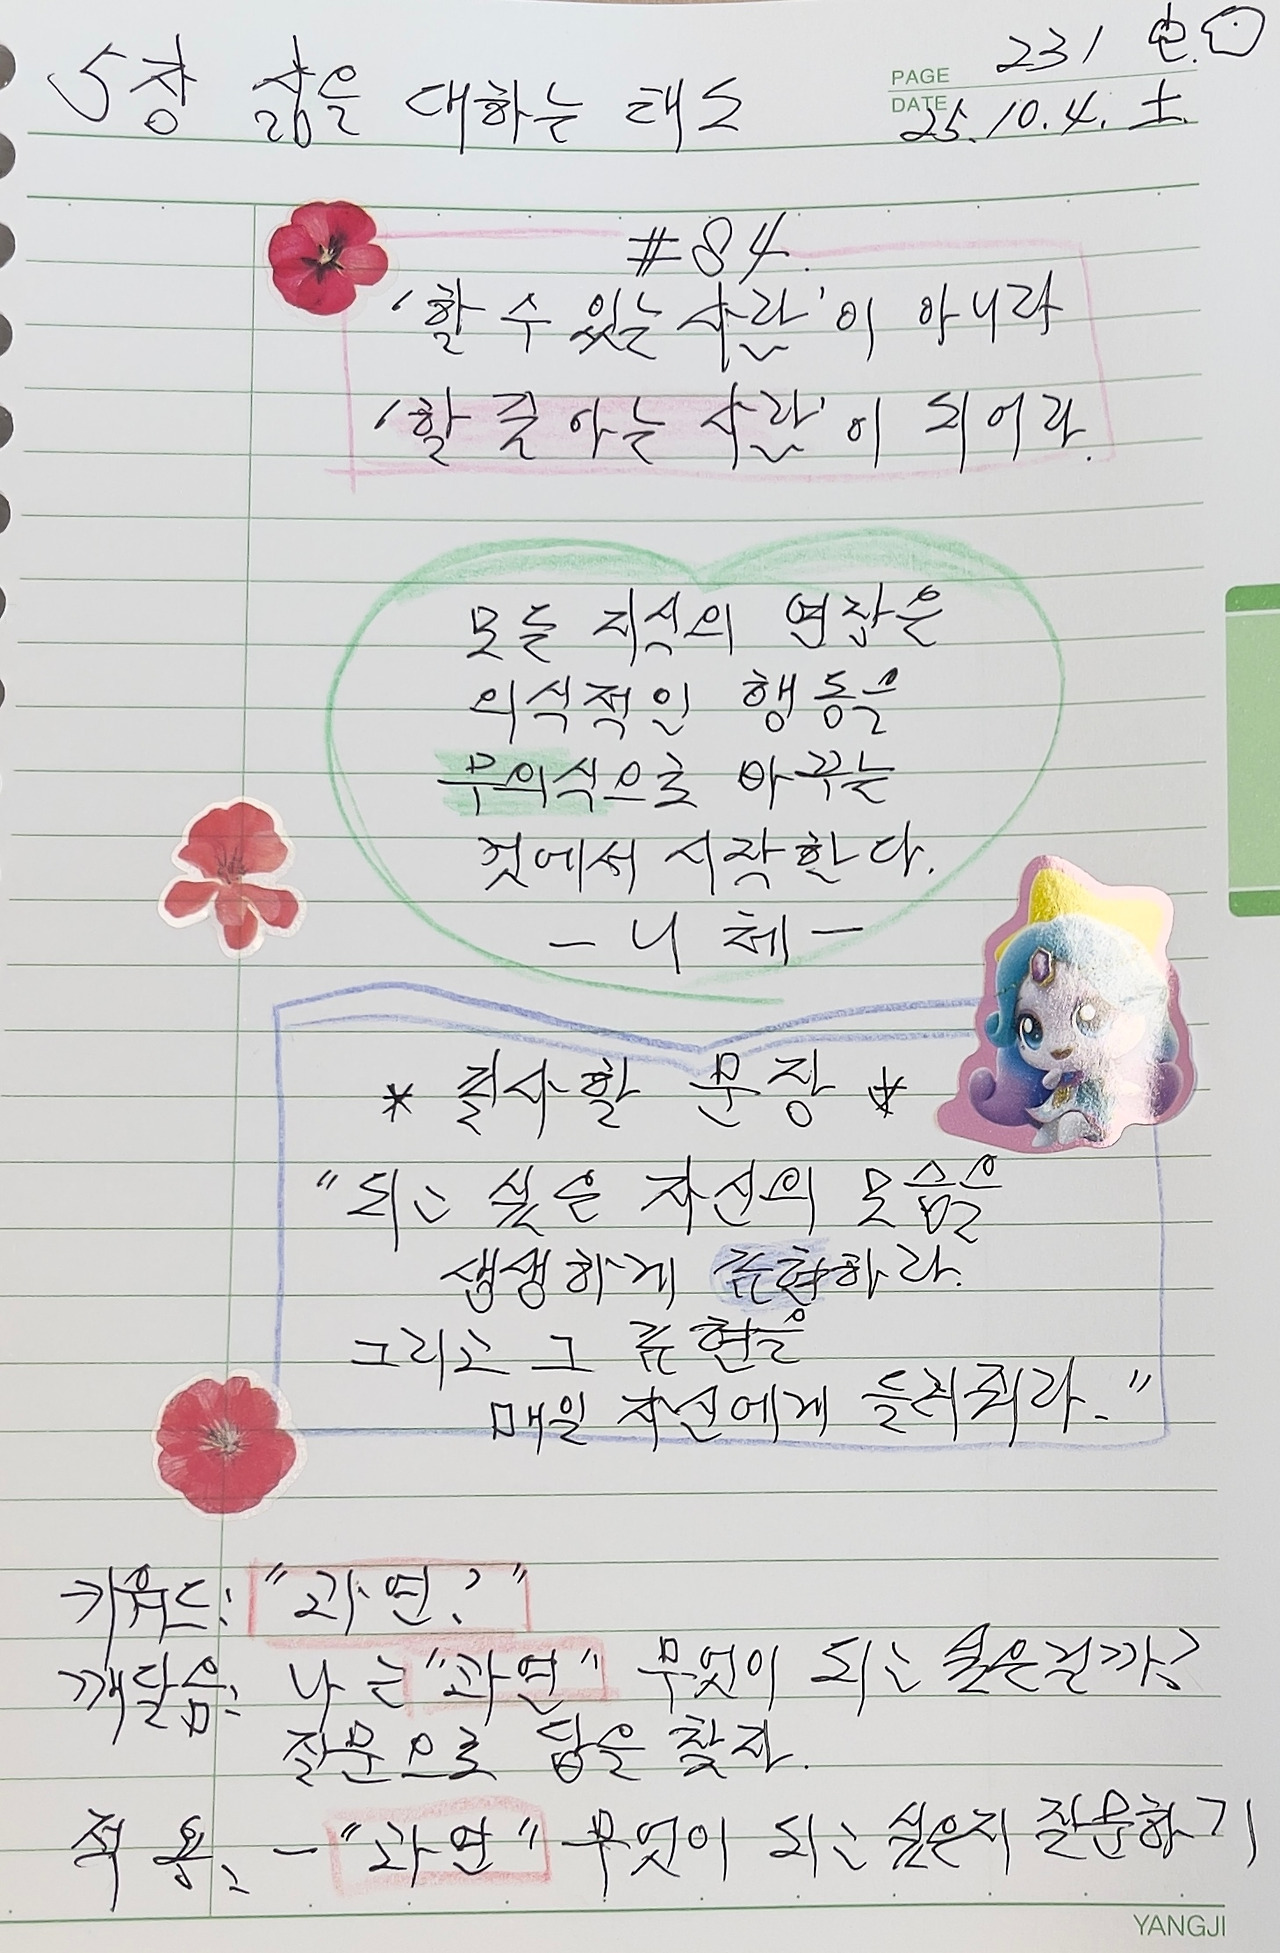 5장 삶을 대하는 태도
PAGE 231
DATE 25. 10. 4. 土.
#84.
'할 수 있는 사람'이 아니라
'할 줄 아는 사람'이 되어라.
모든 지식의 연장은
의식적인 행동을
무의식으로 바꾸는
것에서 시작한다.
- 니체 -
* 필사할 문장 *
"되고 싶은 자신의 모습을
생생하게 표현하라.
그리고 그 표현을
매일 자신에게 들려줘라."
키워드: "과연?"
깨달음: 나는 "과연" 무엇이 되고 싶은걸까?
질문으로 답을 찾자.
적용: - "과연" 무엇이 되고 싶은지 질문하기
YANGJI